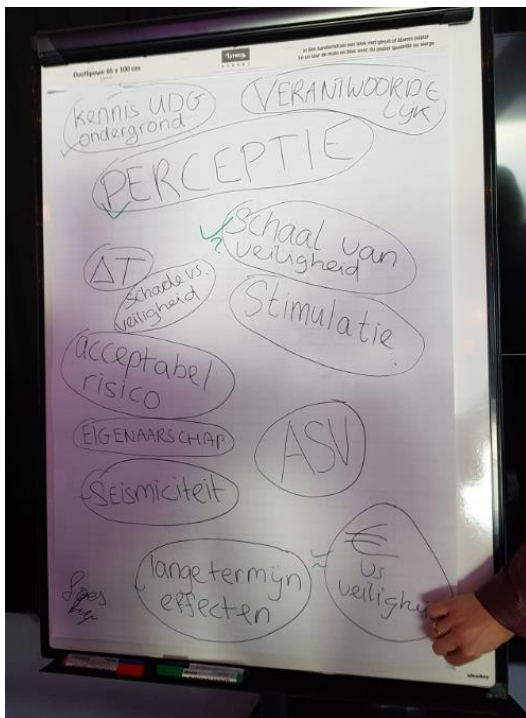 Duoflipover 65 x 100 cm
kennis UDG
ondergrond
VERANTWOORDE
LYK
PERCEPTIE
Schaal van
veiligheid
?
ΔT
schade vs.
veiligheid
Stimulatie
acceptabel
risico
EIGENAARSCHAP
ASV
SEismiciteit
lange termijn
effecten
€
vs
veilighei